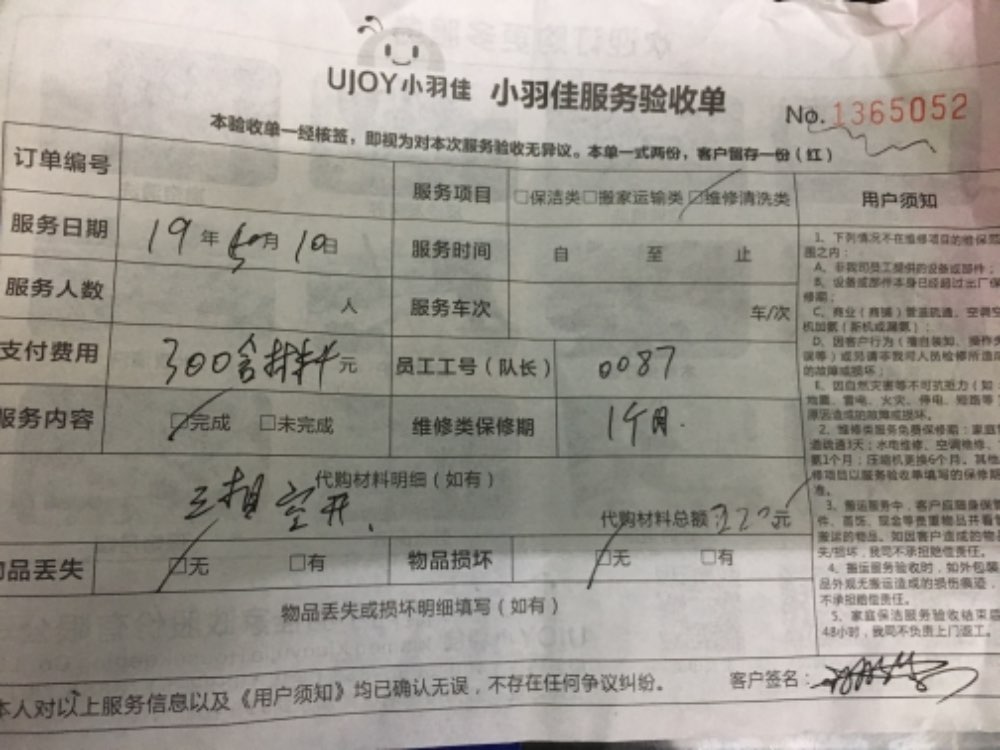 UJOY小羽佳 小羽佳服务验收单 No. 1365052
本验收单一经核签，即视为对本次服务验收无异议。本单一式两份，客户留存一份（红）
订单编号 服务项目 □保洁类□搬家运输类□维修清洗类
服务日期 19年 月10日 服务时间 自 至 止
服务人数 人 服务车次 车/次
支付费用 300含材料元 员工工号（队长） 0087
服务内容 □完成 □未完成 维修类保修期 1个月.
代购材料明细（如有）
三相空开.
代购材料总额 元
物品丢失 □无 □有 物品损坏 □无 □有
物品丢失或损坏明细填写（如有）
本人对以上服务信息以及《用户须知》均已确认无误，不存在任何争议纠纷。 客户签名：
用户须知
1、下列情况不在维修项目的维保范
围之内：
A、非我司员工提供的设备或部件；
B、设备或部件本身已经超过出厂保
修期；
C、商业（商铺）管道疏通、空调空
机加氨（新机或漏氨）；
D、因客户行为（擅自装卸、操作失
误等）或另请非我司人员检修所造成
的故障或损坏；
E、因自然灾害等不可抗拒力（如
地震、雷电、火灾、停电、短路等
原因造成的故障或损坏。
2、维修类服务免费保修期：家庭管
道疏通3天；水电维修、空调维修、
氨1个月；压缩机更换6个月。其他
修项目以服务验收单填写的保修期
准。
3、搬运服务中，客户应随身保管
件、首饰、现金等贵重物品共看管
搬运的物品。如因客户造成的物品
失/损坏，我司不承担赔偿责任。
4、搬运服务验收时，如外包装
品外观无搬运造成的损伤痕迹，
不承担赔偿责任。
5、家庭保洁服务验收结束后
48小时，我司不负责上门返工。